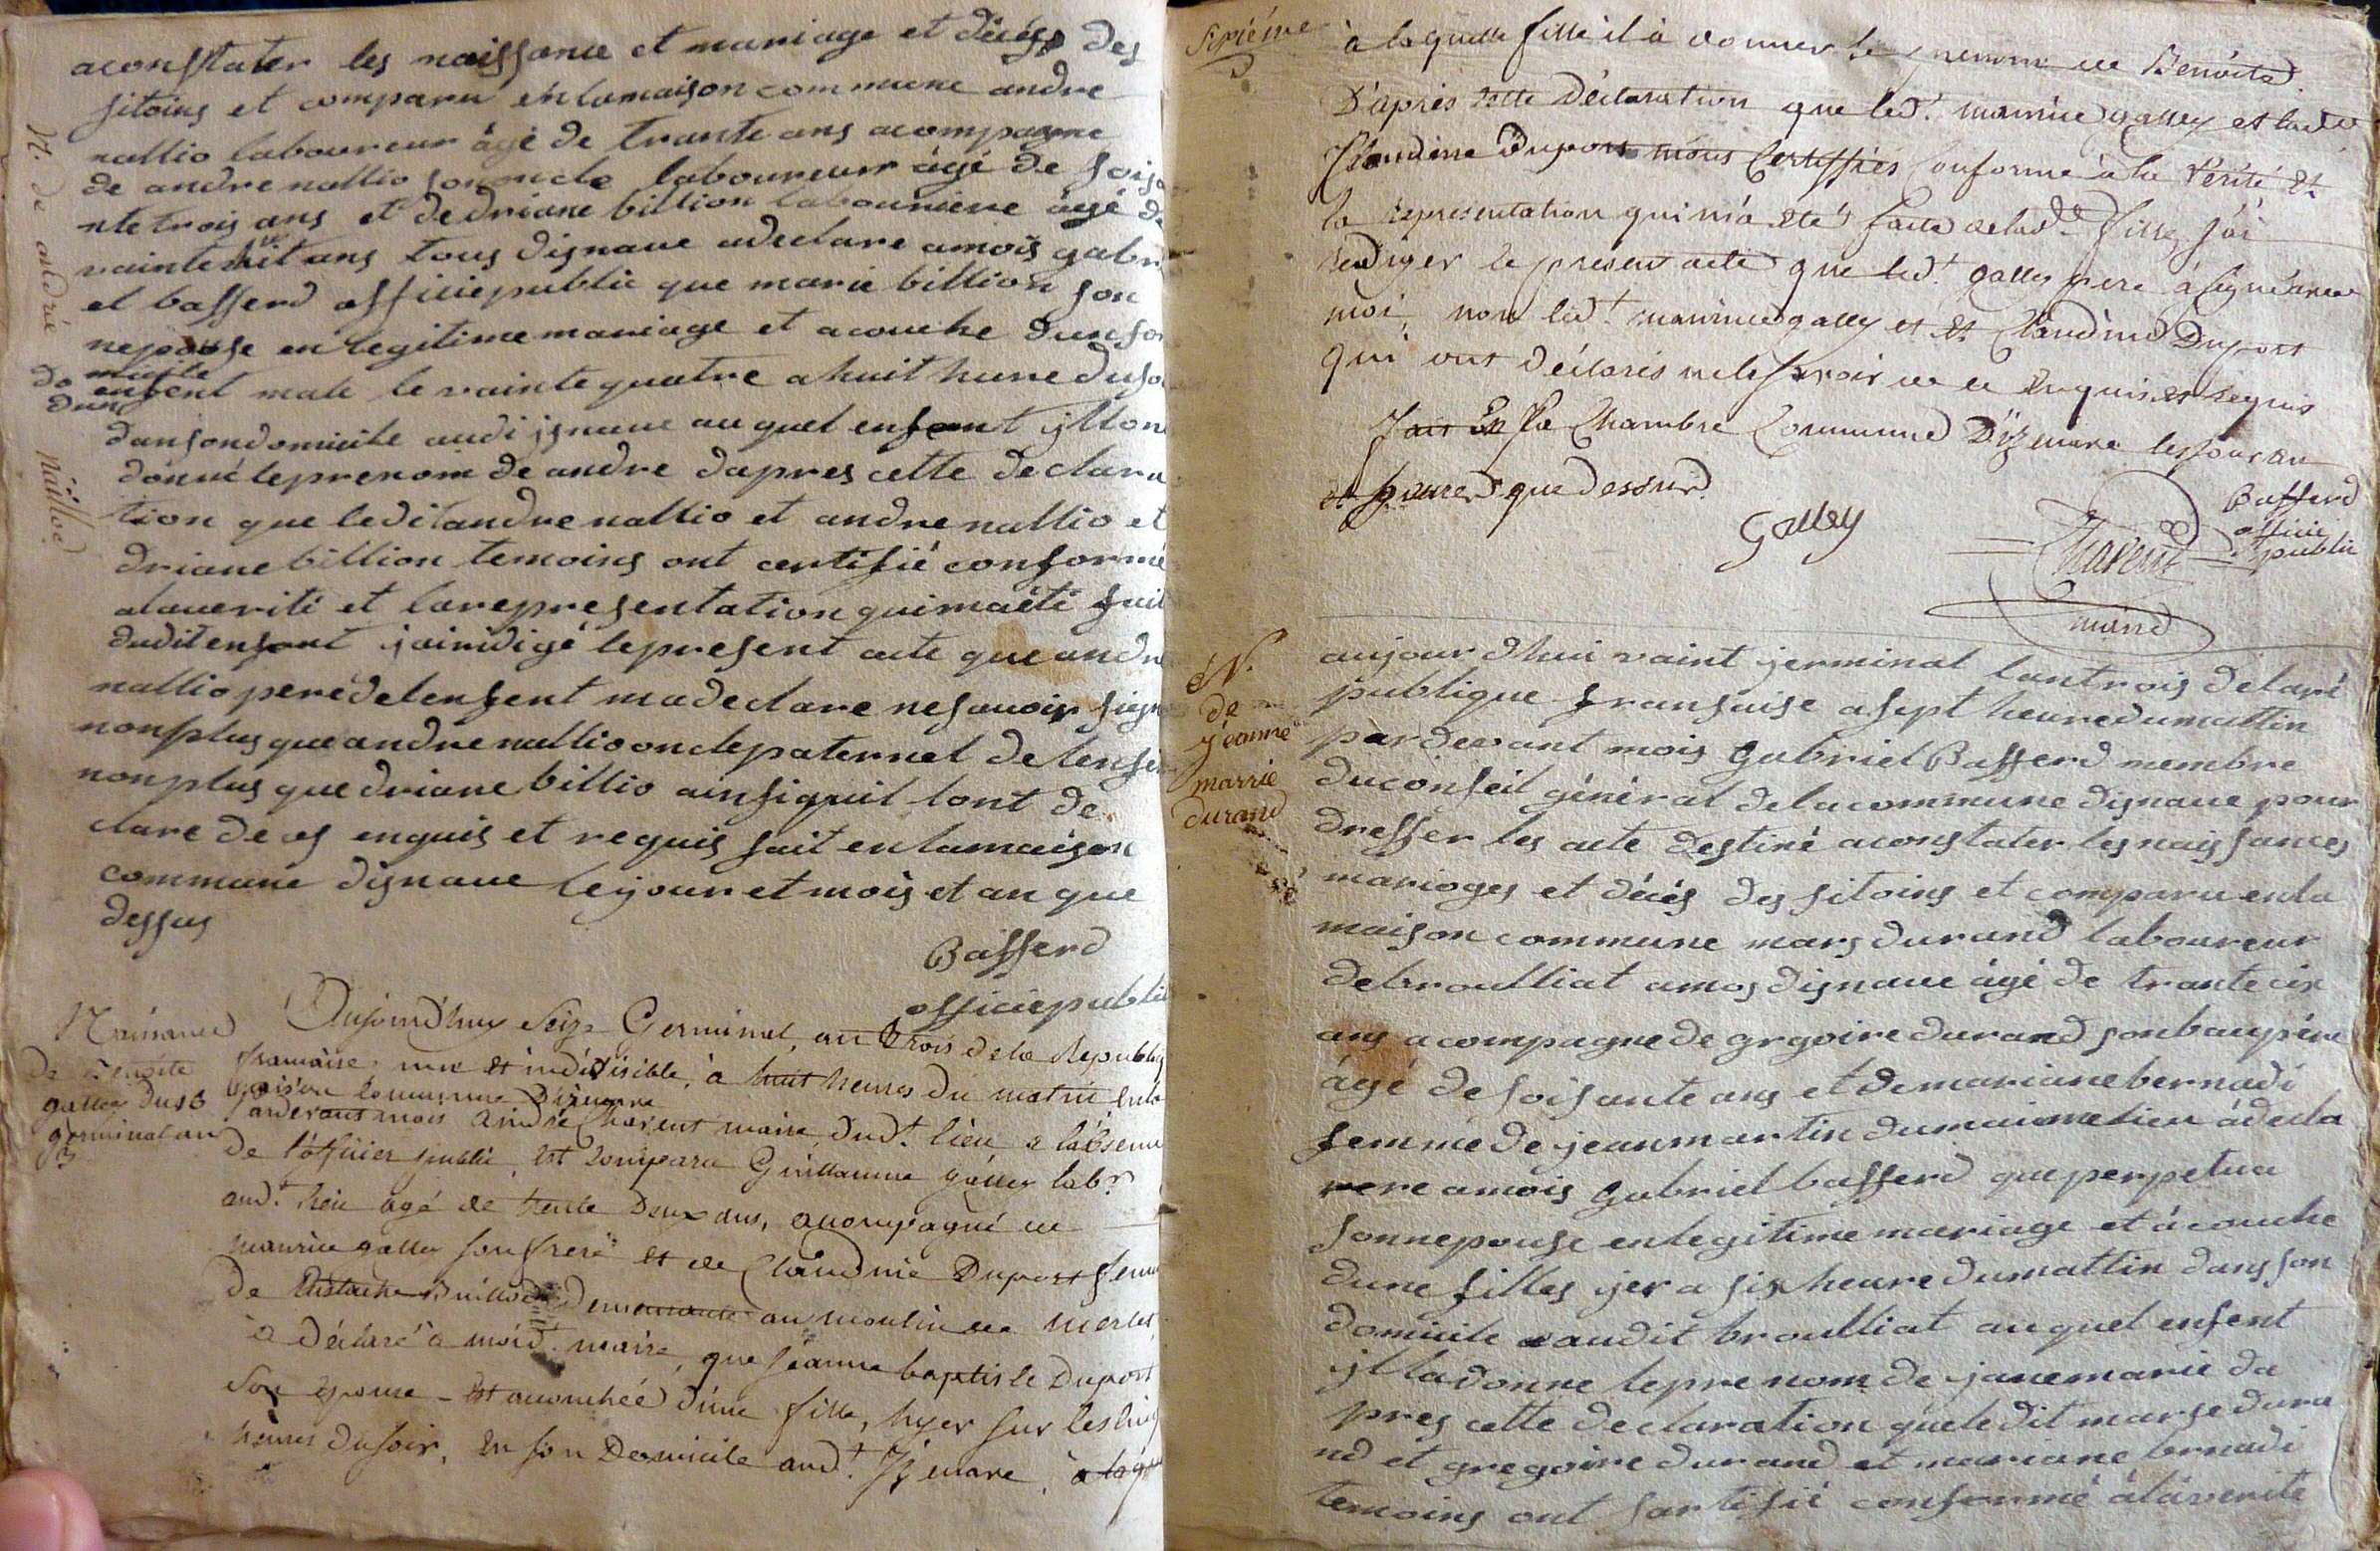 aconstater les naissance et mariage et décés des
sitoins et comparu enlamaison commune andre
nallio laboureur âgé de trante ans acompagne
de andre nallio son oncle laboureur âgé de soisa
nte trois ans et de driane billion labouriere âgé de
vainte huit ans tous disnaue adeclare amois gabri
el basserd officiepublic que marie billion son
nepouse en legitime mariage et acouche dun son
enfent male le vainte quatre a huit hure du soi
dansondomicile audi isnaue auquel enfant yllon
donné leprenom de andre dapres cette declara
tion que ledit andre nallio et andre nallio et
driane billion temoins ont certifié conformé
alauerité et larepresentation quimaété fait
duditenfant jairidigé lepresent acte que andre
nallio pere delenfent madeclare nesauoir sign
nonplus que andre nallio oncle paternel de lenfen
nonplus que driane billio ainsi quil lont de
clare de es enquis et requis fait enlamaison
commune disnaue lejour et mois et an que
dessus
Basserd
officiepublic
N. de andré naillod
Naissance
De Benoite
galley du 16
germinal an
3
Aujourd'huy Seize Germinal, an trois de la Republiq
francaise, une et indivisible, à huit heures du matin en la
maison commune Dizenave
Pardevant mois André Charent maire dud.t lieu, a l'absence
de l'officier public, est comparu Guillaume galley lab.r
aud.t lieu agé de trente Deux ans, acompagné de
maurice galley son frere et de Claudine Duport femme
de Eustache demeurante au moulin de merlet,
a déclaré à moid. maire, que Jeanne baptiste Duport
son epouse est acouchée d'une fille, hyer sur les huit
heures du soir, en son Domicile aud.t Izenave, a laq
Sipiéme
à laquelle fille il à donner le prenom de Benoite.
D'après cette Déclaration que led.t maurice galley et lad.e
Claudine Duport nous Certiffiés conforme à la Vérité et
la representation qui m'a eté faite de lad.e fille, j'ai
rediger le present acte que led.t galley pere à signé avec
moi, non led.t maurice galley et et Claudine Duport
qui ont déclarés ne le savoir de ce enquis et requis
fait En la Chambre Commune D'izenave les jour an
et que dessus.
Galley
Charent
maire
Basserd
officie
public
N.
de
jeanne
marrie
durand
aujourdhui vaint jerminal lantrois delaré
publique fransaise a sept heuredumattin
par devant mois Gabriel Basserd membre
duconseil général delacommune disnaue pour
dresser les acte destiné aconstater les naissances
marioges et décés des sitoins et comparu enla
maison commune mars durand laboureur
debroulliat amos disnaue âgé de trante cix
ans acompagne de grgoire durand son baupére
âgé de soisante ans et demariane bernadi
femme de jean martin dumaime lieu a decla
rere amois gabriel basserd que perpetua
sonnepouse enlegitime mariage et acouche
dune filles yer a six heure dumattin dans son
domicile audit broulliat auquel enfent
ylladonne leprenom de janemarie da
pres cette declaration queledit marse dura
nd et gregoire durand et mariane bernadi
temoins ont sartifié conformé àlaverité